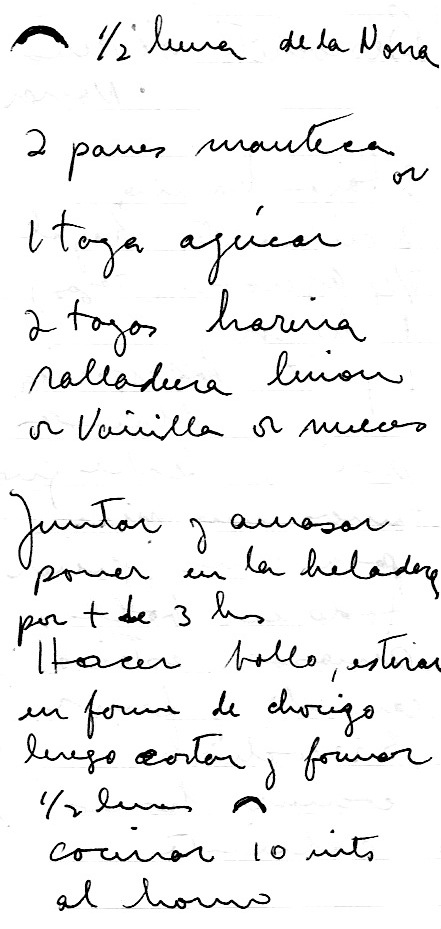 1/2 luna de la Nona
2 panes manteca
or
1 taza azúcar
2 tazas harina
ralladura limon
or Vainilla or nueces
Juntar y amasar
poner en la heladera
por + de 3 hrs
Hacer bollo, estirar
en forma de chorizo
luego cortar y formar
1/2 lunas
cocinar 10 mts
al horno